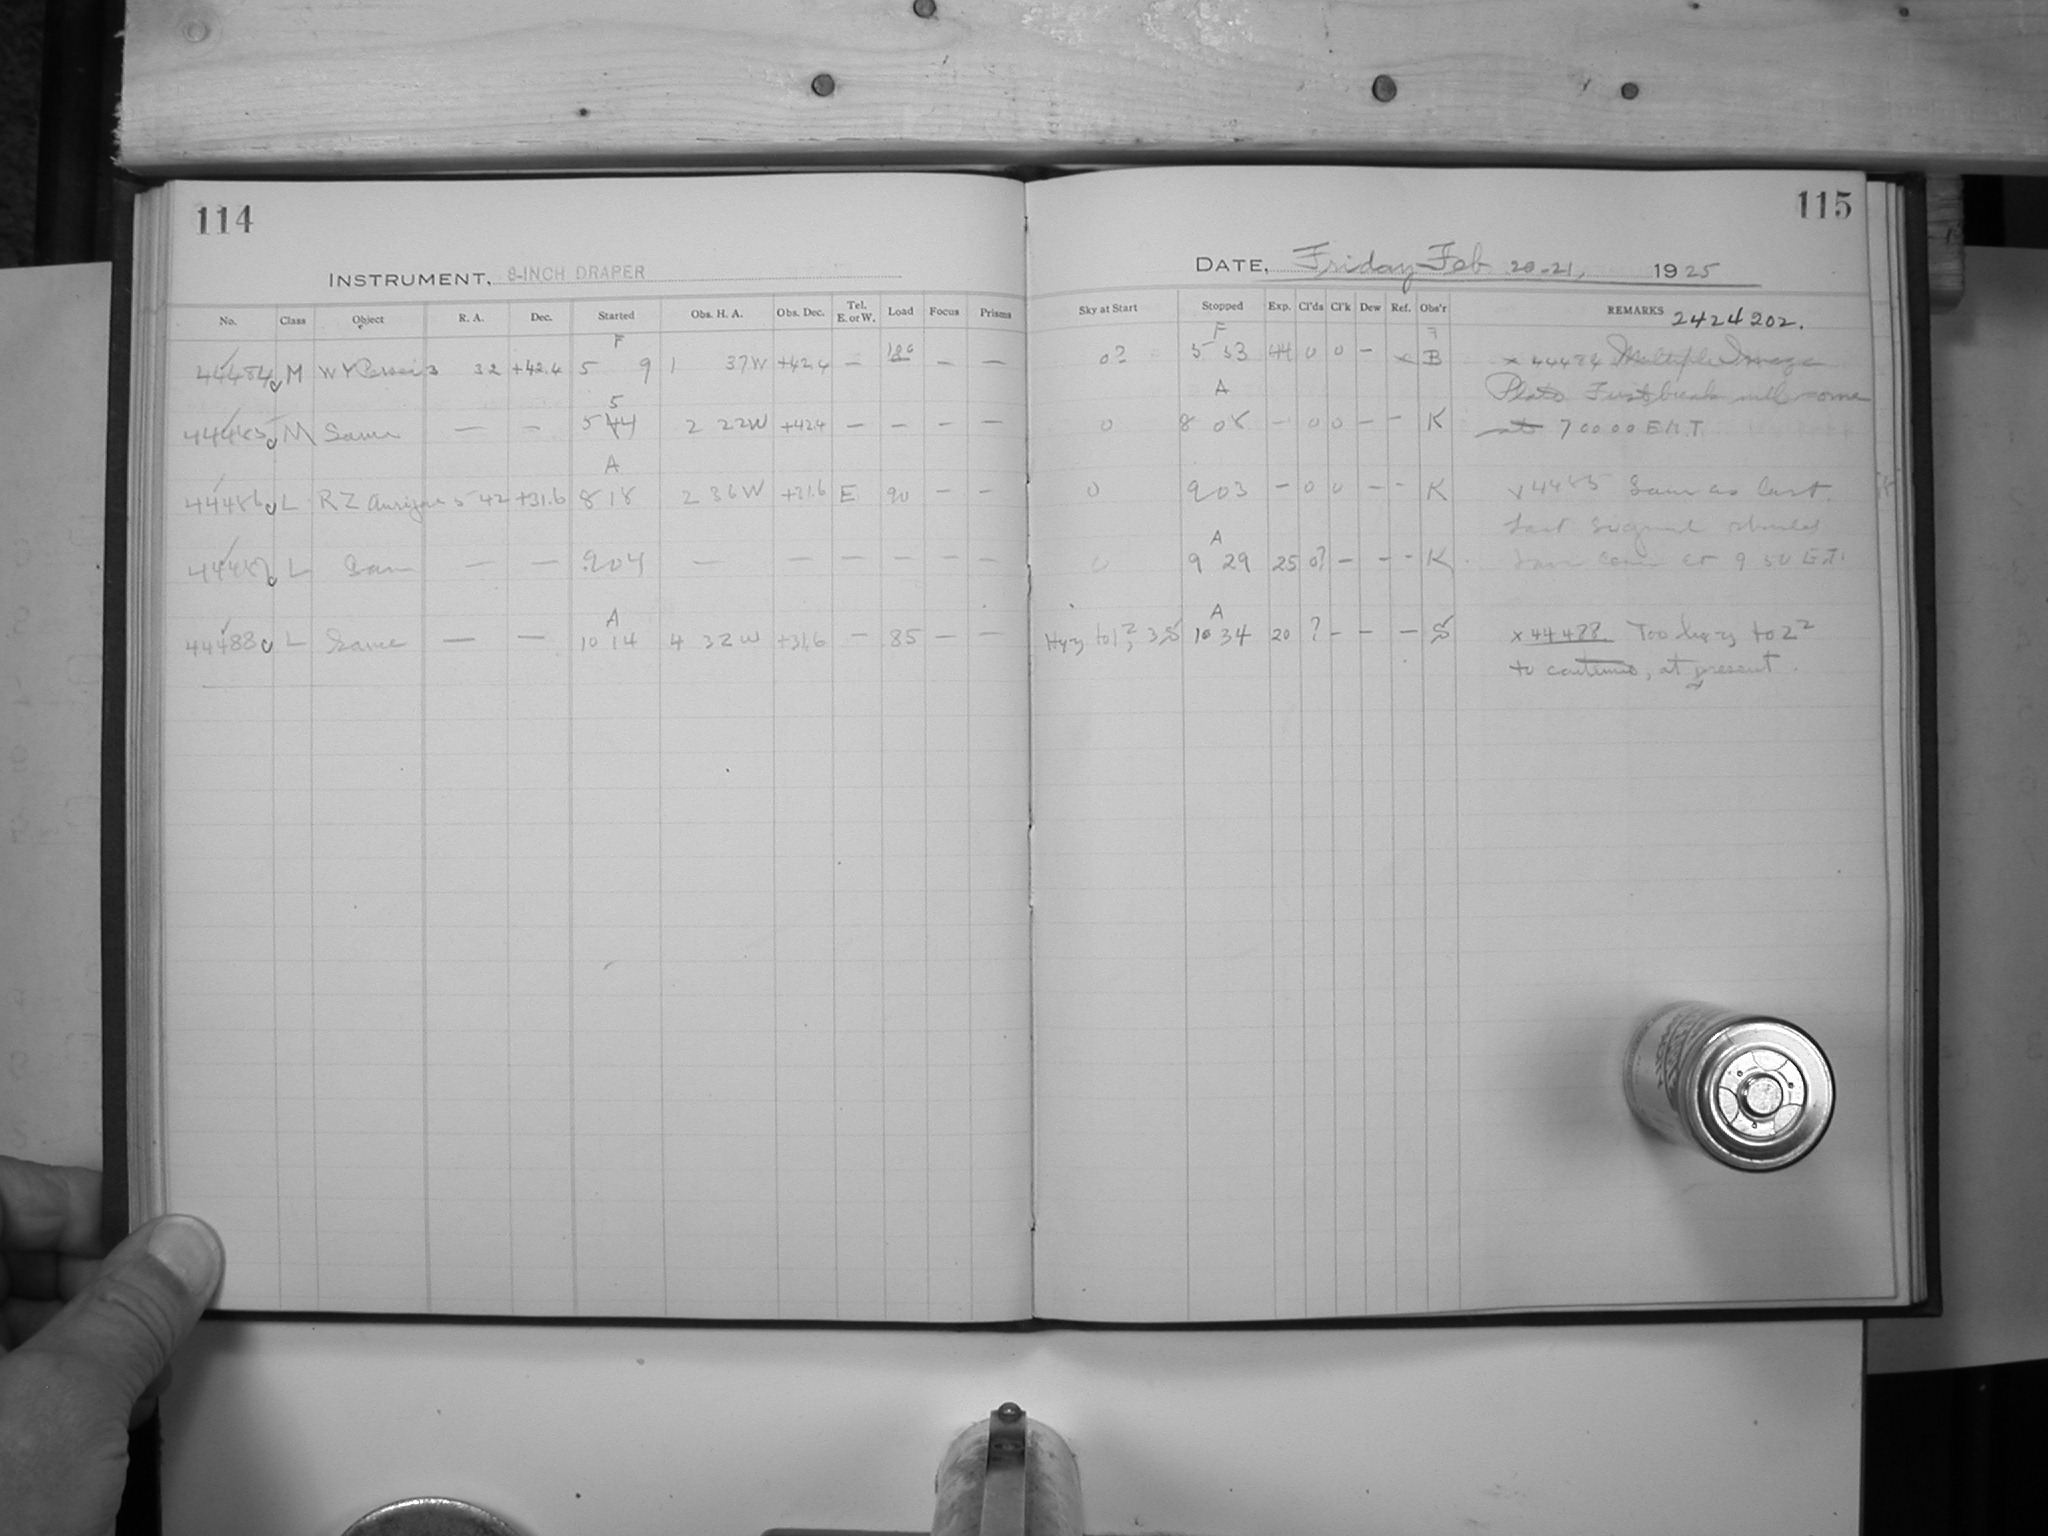 114
115
INSTRUMENT, 8-INCH DRAPER
DATE, Friday Feb 20-21, 1925
No. Class Object R. A. Dec. Started Obs. H. A. Obs. Dec. Tel. E. or W. Load Focus Prisms
Sky at Start Stopped Exp. Cl'ds Cl'k Dew Ref. Obs'r REMARKS 2424202.
F
F
44484 M W Y Persei 3 32 +42.4 5 9 1 37W +42.4 — 180 — —
0? 5 53 44 0 0 — x B x 44484 Multiple Image
5
A
Plate First break will come
44485 M Same — — 5 44 2 22W +42.4 — — — —
0 8 08 — 0 0 — — K at 7 00 00 E.M.T.
A
44486 L R Z Aurigae 5 42 +31.6 8 18 2 36 W +31.6 E 90 — —
0 9 03 — 0 0 — — K x 4485 Same as last.
Last signal should
A
44487 L Sam — — 9 04 — — — — — —
0 9 29 25 0? — — — K have come at 9 50
A
A
44488 L Same — — 10 14 4 32 W +31.6 — 85 — —
Hazy to 1, 2, 3 S 10 34 20 ? — — — S x 44488. Too hazy to 2 2
to continue, at present.